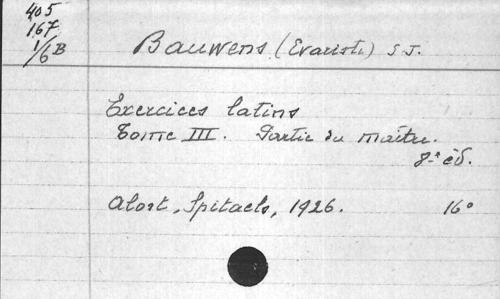 405
167
1/6 B
Bauwens (Evariste) S.J.
Exercices latins
Tome III. Partie du maître.
8e éd.
Alost, Spitaels, 1926. 16°